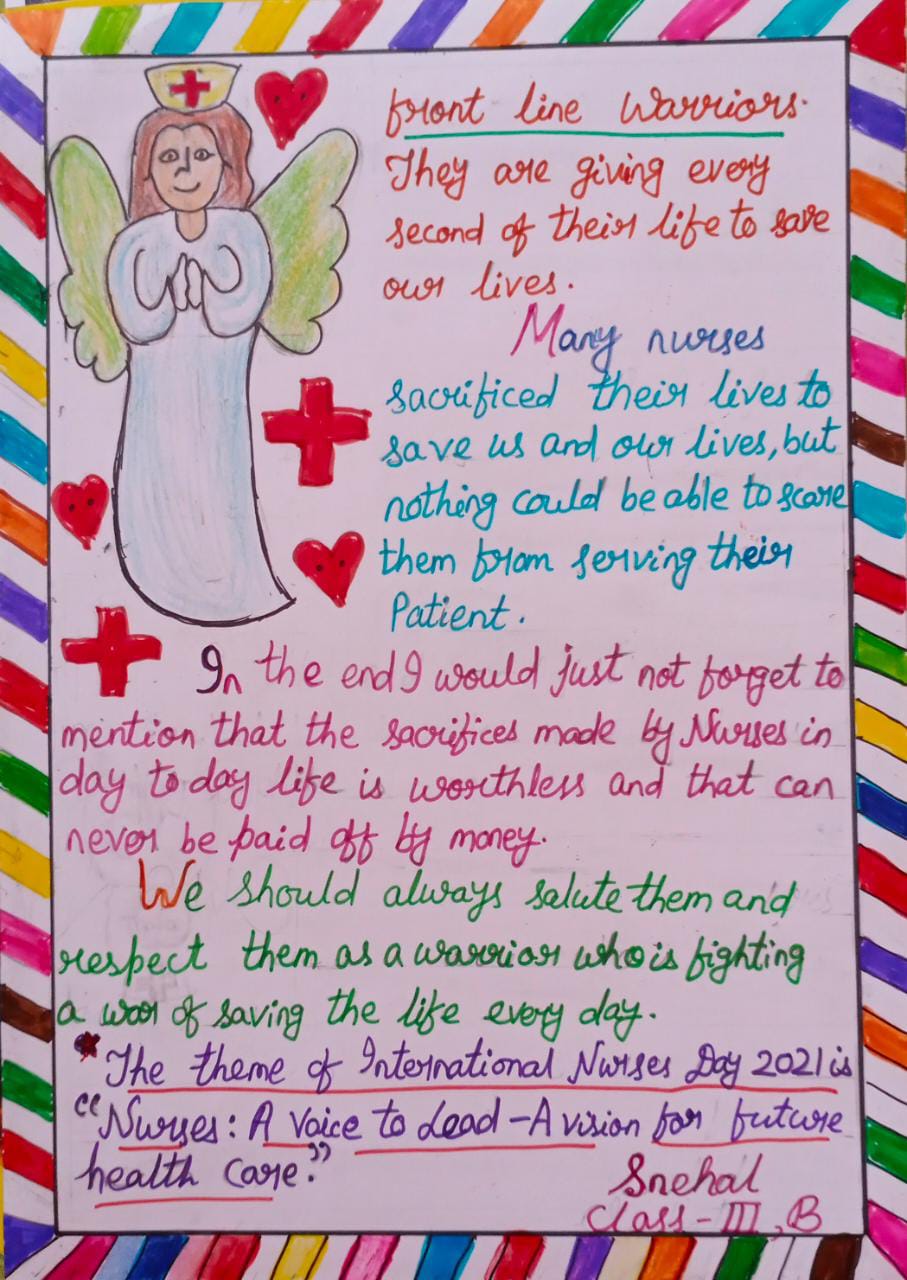 Front line Warriors.
They are giving every
second of their life to save
our lives.
Many nurses
sacrificed their lives to
save us and our lives, but
nothing could be able to scare
them from serving their
Patient.
In the end I would just not forget to
mention that the sacrifices made by Nurses in
day to day life is worthless and that can
never be paid off by money.
We should always salute them and
respect them as a warrior who is fighting
a war of saving the life every day.
*The theme of International Nurses Day 2021 is
"Nurses: A Voice to Lead - A vision for future
health care."
Snehal
Class - III, B